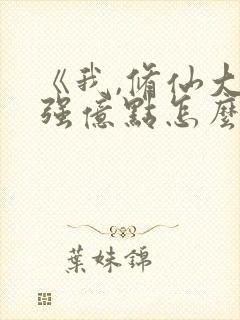 《我,脩仙大
强億點怎麼
葉妹錦